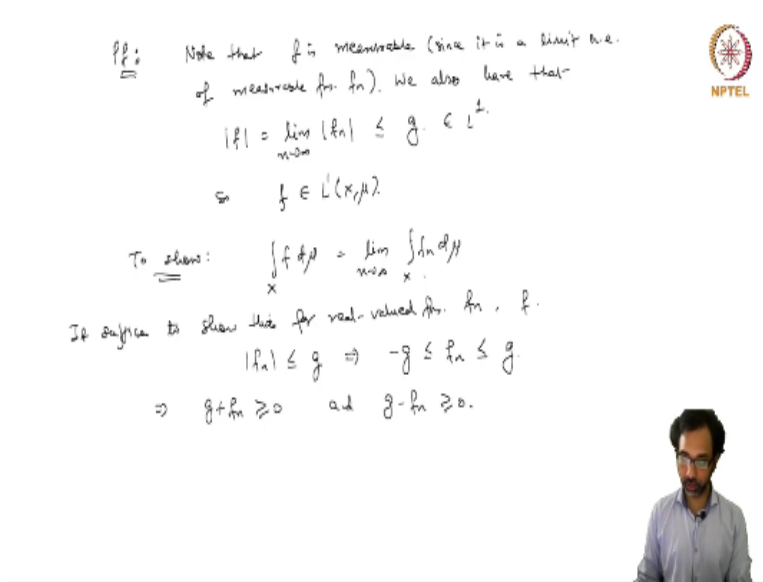 Pf: Note that f is measurable (since it is a limit a.e.
of measurable fns. fn). We also have that
|f| = lim n→∞ |fn| ≤ g. ∈ L¹.
so f ∈ L¹(X,μ).
To show: ∫X f dμ = lim n→∞ ∫X fn dμ
It suffices to show this for real-valued fns. fn, f.
|fn| ≤ g ⇒ -g ≤ fn ≤ g.
⇒ g+fn ≥ 0 and g-fn ≥ 0.
NPTEL